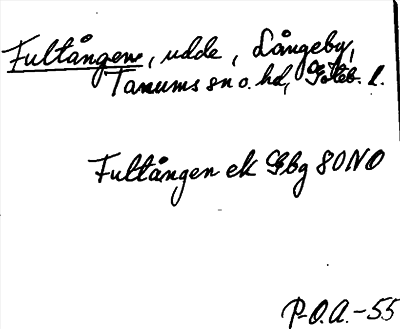 Fultångene, udde, Långeby,
Tanums sn o. hd, Göteb. l.
Fultången ek Gbg 80NO
P-O.A.-55